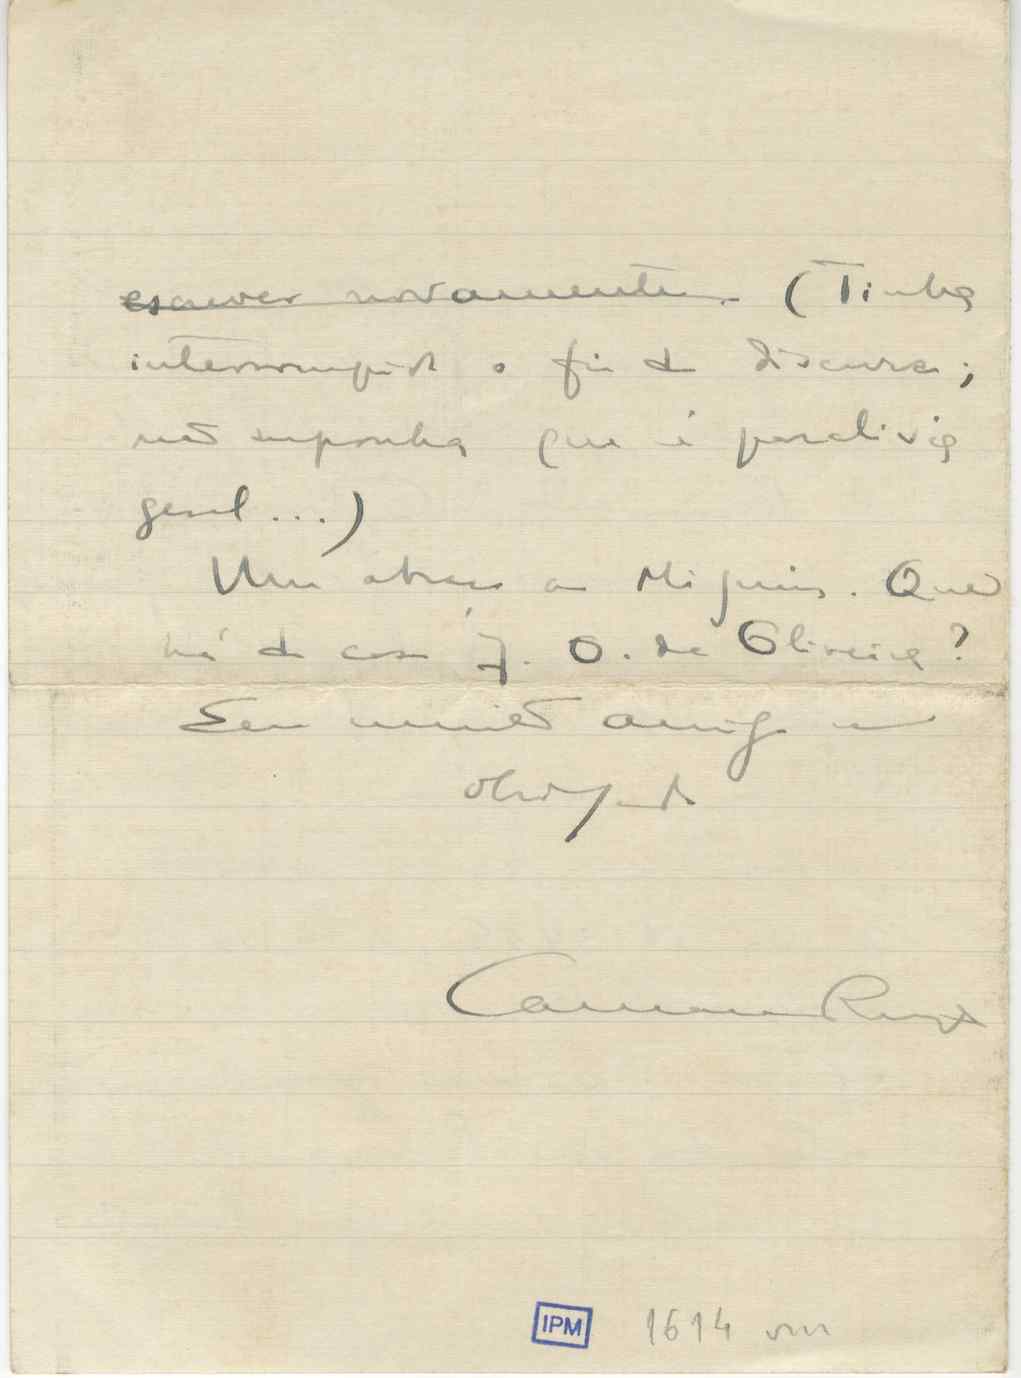 escrever novamente. (Tinha
interrompido o fio do discurso;
não suponha que é paralisia
geral...)
Um abraço ao Miguéis. Que
há do caso J. O. de Oliveira?
Seu muito amigo e
obrigado
Camara Reys
IPM 1614 vm